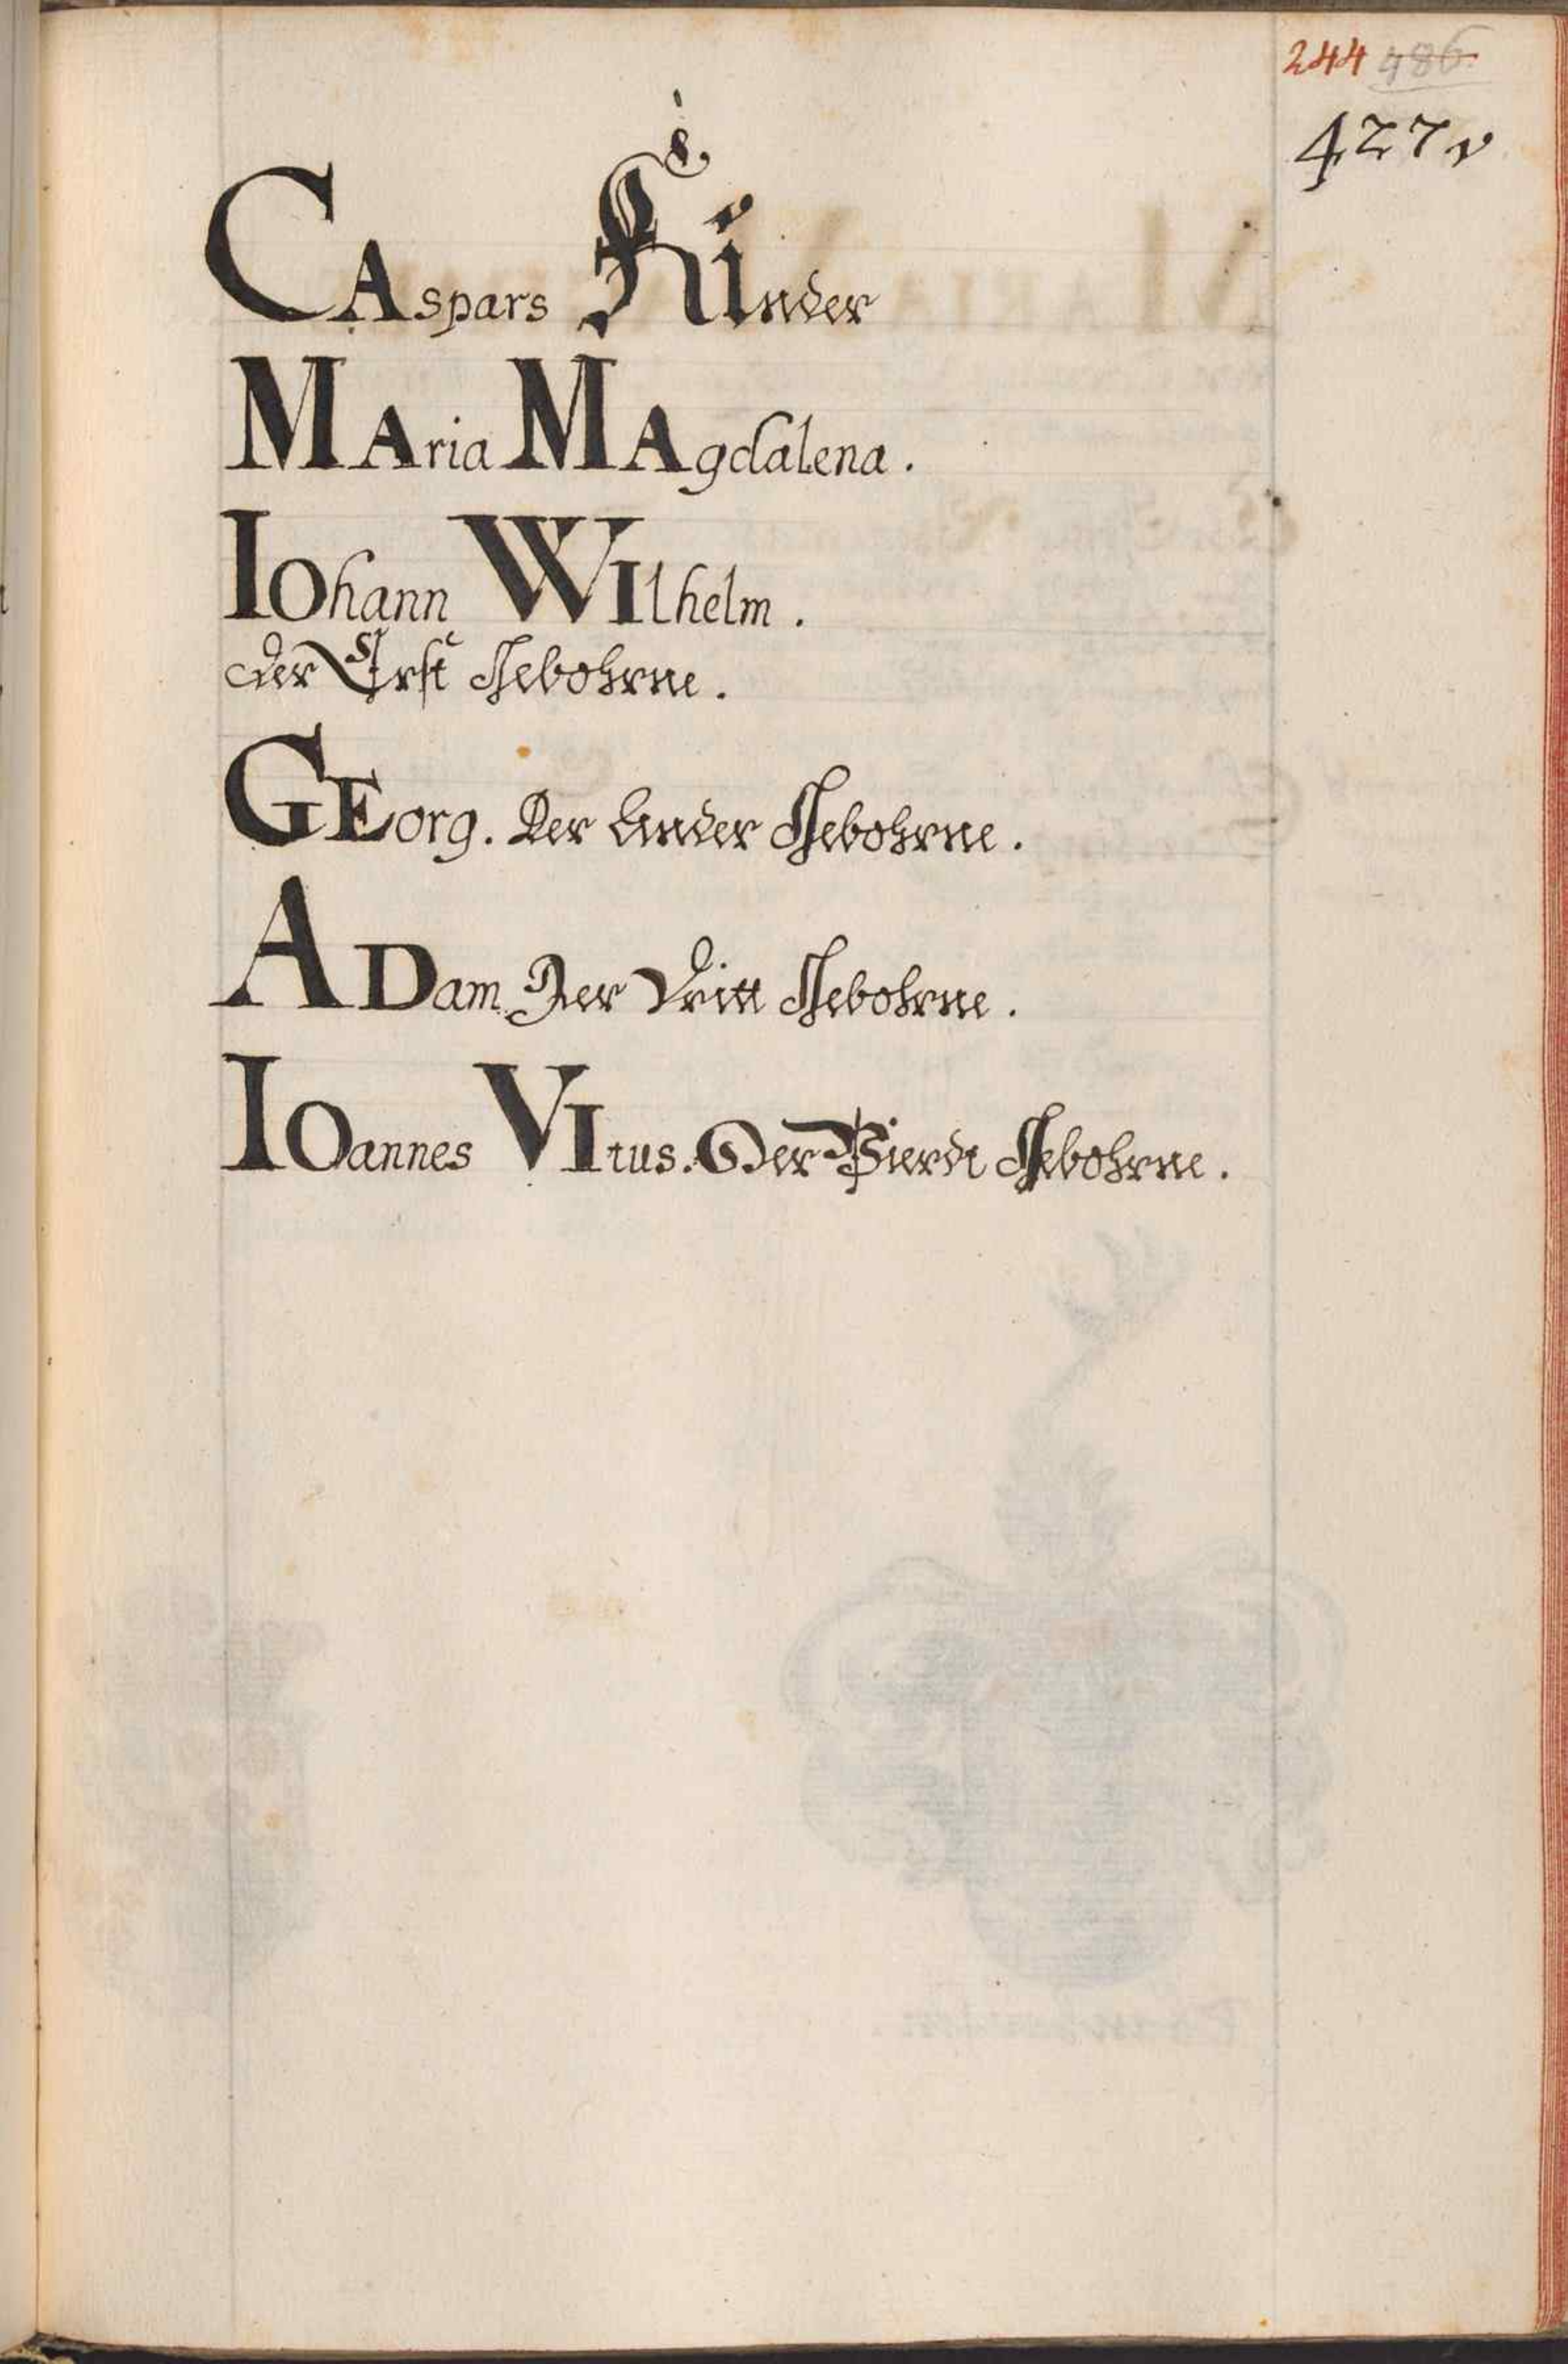 244 486
427v
CAspars Kinder
MAria MAgdalena.
IOhann WIlhelm.
der Erst Gebohrne.
GEorg. Der Ander Gebohrne.
ADam. Der Dritt Gebohrne.
IOannes VItus. Der Vierdt Gebohrne.